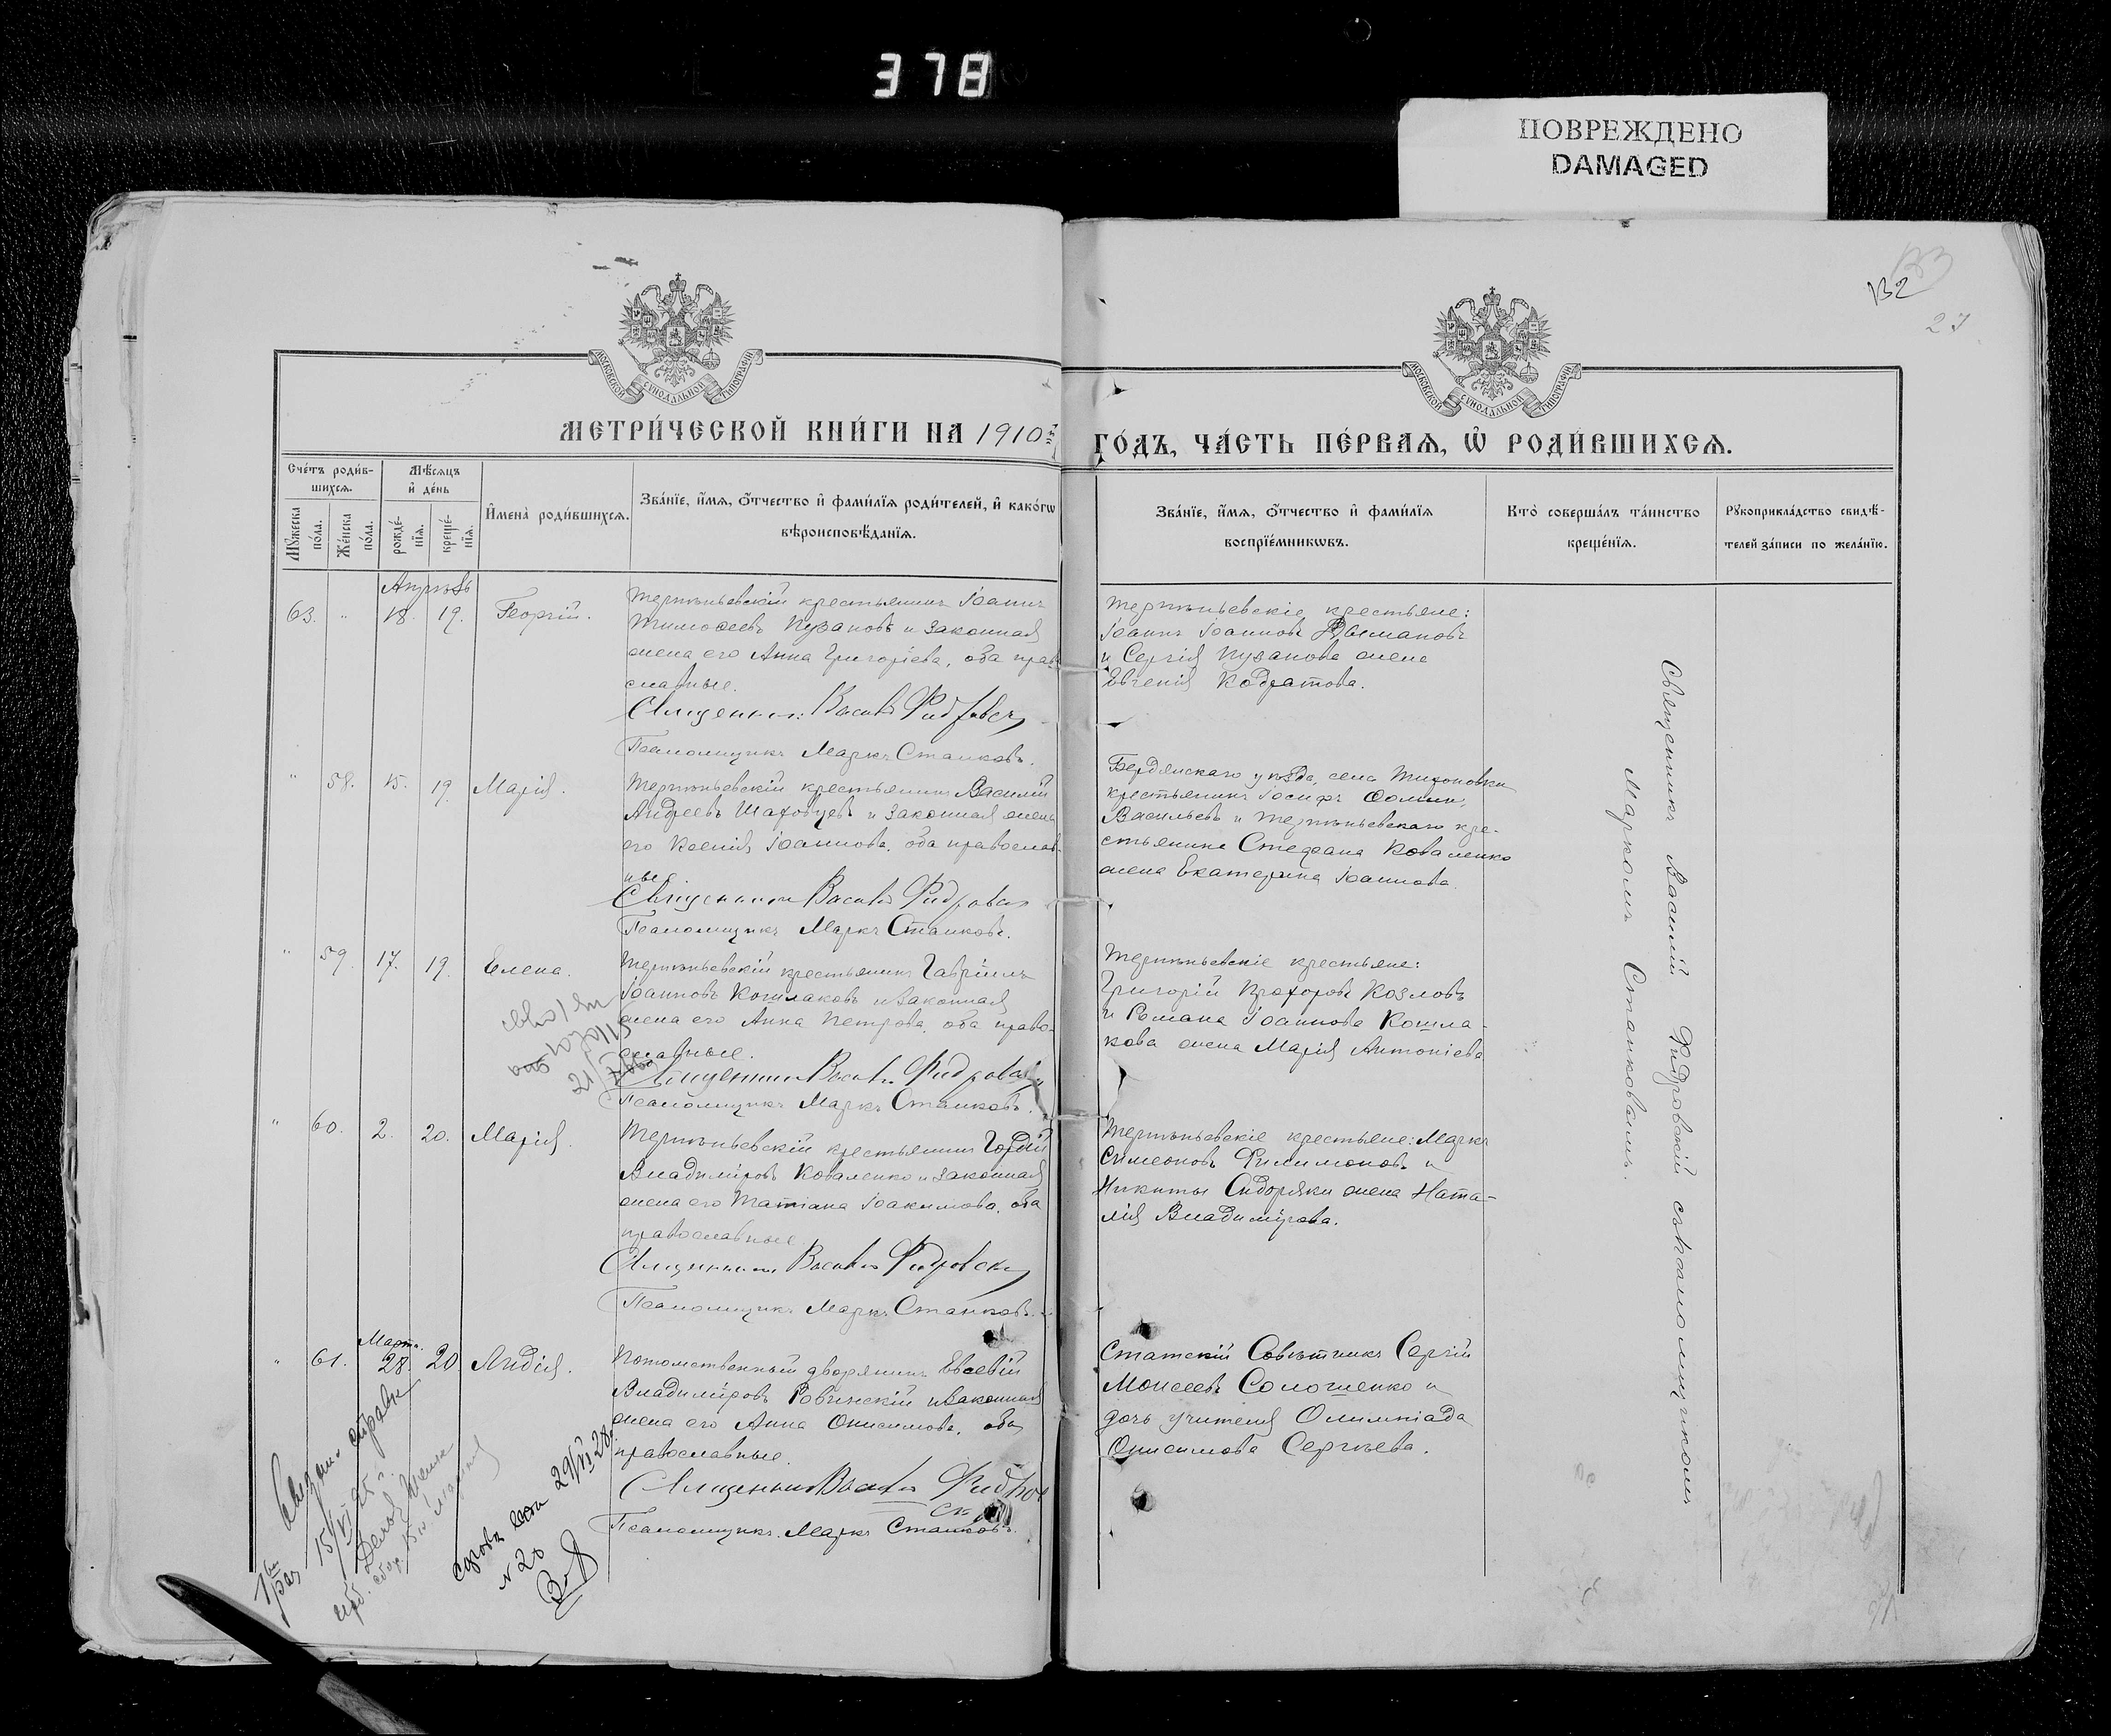 378
ПОВРЕЖДЕНО
DAMAGED
132
133
27
МОСКОВСКОЙ СѴНОДАЛЬНОЙ ТИПОГРАФІИ
МОСКОВСКОЙ СѴНОДАЛЬНОЙ ТИПОГРАФІИ
МЕТРИ́ЧЕСКОЙ КНИ́ГИ НА 1910
ГО́ДЪ, ЧА́СТЬ ПЕ́РВАѦ, Ѽ РОДИ́ВШИХСѦ.
Сче́тъ роди́в-
шихсѧ.
Мꙋ́жеска
по́ла.
Же́нска
по́ла.
Мѣ́сѧцъ
и҆ де́нь
рожде́-
нїѧ.
креще́-
нїѧ.
И҆мена̀ роди́вшихсѧ.
Зва́нїе, и҆́мѧ, ѻ҆́тчество и҆ фами́лїѧ роди́телей, и҆ како́гѡ
вѣроисповѣ́данїѧ.
Зва́нїе, и҆́мѧ, ѻ҆́тчество и҆ фами́лїѧ
воспрїе́мникѡвъ.
Кто̀ соверша́лъ та́инство
креще́нїѧ.
Рꙋкоприкла́дство свидѣ́-
телей за́писи по жела́нїю.
Апрѣль
63. " 18. 19. Георгій.
Терпѣньевскій крестьянинъ Іоаннъ
Тимоѳеевъ Пузановъ и законная
жена его Анна Григоріева, оба право-
славные.
Священникъ Василій Фидровскій
Псаломщикъ Маркъ Станковъ.
Терпѣньевскіе крестьяне:
Іоаннъ Іоанновъ
и Сергія Пузанова жена
Евгенія Кодратова.
" 58. 15. 19. Марія.
Терпѣньевскій крестьянинъ Василій
Андреевъ Шаховцевъ и законная жена
его Ксенія Іоаннова, оба православ-
ные.
Священникъ Василій Фидровскій
Псаломщикъ Маркъ Станковъ.
Бердянскаго уѣзда, села Тихоновки
крестьянинъ Іосифъ Ѳоминъ
Васильевъ и Терпѣньевскаго кре-
стьянина Стефана Коваленко
жена Екатерина Іоаннова.
" 59. 17. 19. Елена.
Терпѣньевскій крестьянинъ Гавріилъ
Іоанновъ Кошлаковъ и законная
жена его Анна Петрова, оба право-
славные.
Священникъ Василій Фидровскій
Псаломщикъ Маркъ Станковъ.
Терпѣньевскіе крестьяне:
Григорій Прохоровъ Козловъ
и Романа Іоаннова Кошла-
кова жена Марія Антоніева
" 60. 2. 20. Марія.
Терпѣньевскій крестьянинъ Гордій
Владиміровъ Коваленко и законная
жена его Татіана Іоакимова, оба
православные.
Священникъ Василій Фидровскій
Псаломщикъ Маркъ Станковъ.
Терпѣньевскіе крестьяне: Маркъ
Симеоновъ Филимоновъ и
Никиты Сидоряки жена Ната-
лія Владимірова.
Марта
" 61. 28. 20 Лидія.
Потомственный дворянинъ Евсевій
Владиміровъ Ровинскій и законная
жена его Анна Онисимова, оба
православные.
Священникъ Василій Фидров
ск
Псаломщикъ Маркъ Станковъ.
Статскій Совѣтникъ Сергій
Моисеевъ Солошенко и
дочь учителя Олимпіада
Онисимова Сергѣева.
Священникъ Василій Фидровскій съ псаломщикомъ
Маркомъ Станковымъ.
справка
15/VI
29/VI 28
N 20